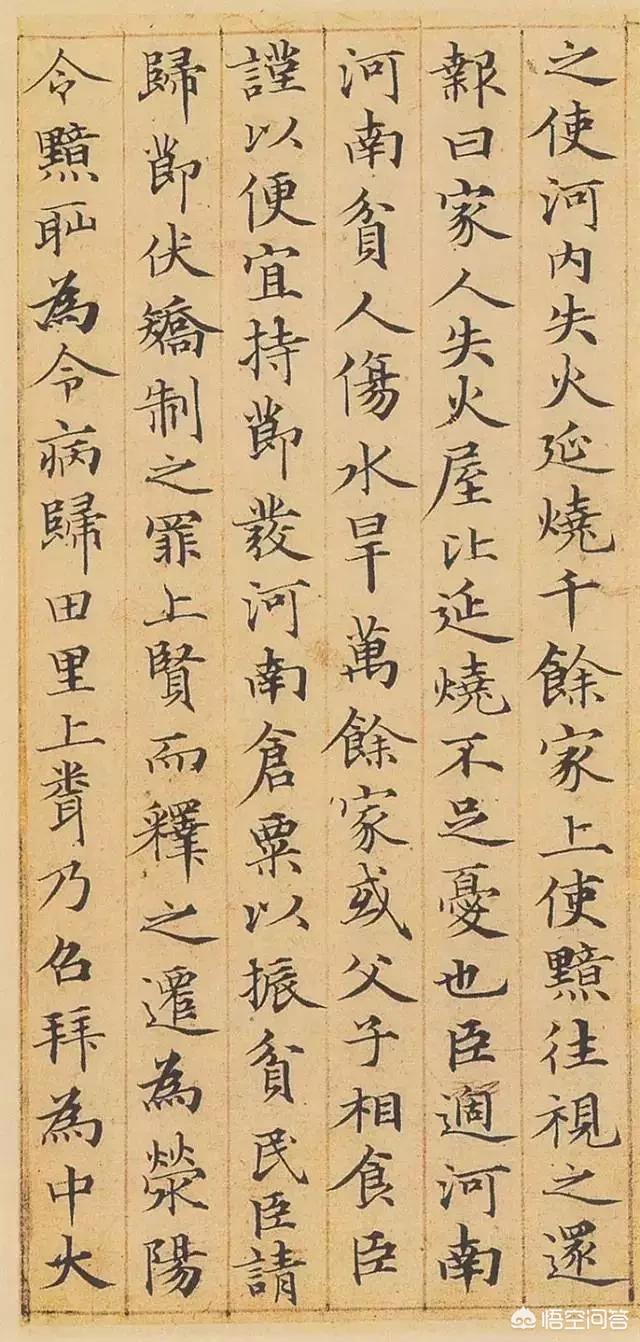 之使河内失火延燒千餘家上使黯往視之還
報曰家人失火屋比延燒不足憂也臣過河南
河南貧人傷水旱萬餘家或父子相食臣
謹以便宜持節發河南倉粟以振貧民臣請
歸節伏矯制之罪上賢而釋之遷為滎陽
令黯耻為令病歸田里上聞乃召拜為中大
悟空问答